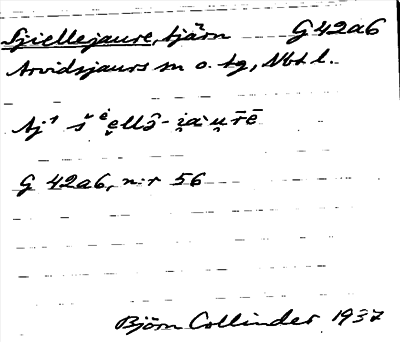 Sjiellejaure, tjärn G 42a6
Arvidsjaurs sn o. tg, Nbt l.
Aj¹
G 42a6, n:r 56
Björn Collinder 1937